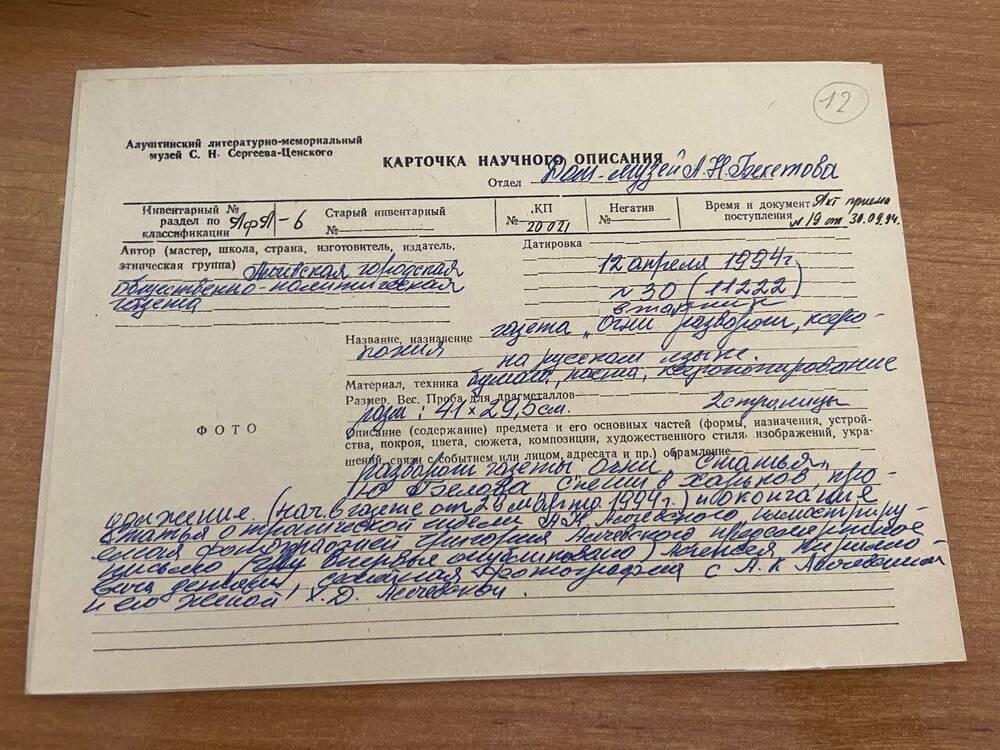 12
Алуштинский литературно-мемориальный
музей С. Н. Сергеева-Ценского
КАРТОЧКА НАУЧНОГО ОПИСАНИЯ
Отдел Дом-музей А.Н.Бекетова
Инвентарный №
раздел по
классификации АфА-6
Старый инвентарный
№
КП
№ 20021
Негатив
№
Время и документ Акт приема
поступления №19 от 30.09.94.
Автор (мастер, школа, страна, изготовитель, издатель,
этническая группа) Алчевская городская
общественно-политическая
газета
Датировка
12 апреля 1994г
№30 (11222)
вторник
Название, назначение газета "Огни разворот, ксеро-
копия
на русском языке.
Материал, техника бумага, краска, ксерокопирование
Размер. Вес. Проба для драгметаллов
разм: 41×29,5см. 2 страницы
ФОТО
Описание (содержание) предмета и его основных частей (формы, назначения, устрой-
ства, покроя, цвета, сюжета, композиции, художественного стиля, изображений, укра-
шений, связи с событием или лицом, адресата и пр.) обрамление
разворот газеты Огни, статья
Ю Белова Спеши в Харьков, про-
должение. (нач. в газете от 29 марта 1994г.) и окончание
статья о трагической гибели А.К. Алчевского иллюстриру-
емая фотографией Григория Алчевского предсмертное
письмо впервые опубликовано) Алексея Кирилло-
вича детям, семейная фотография с А.К Алчевским
и его женой, Х.Д. Алчевской.